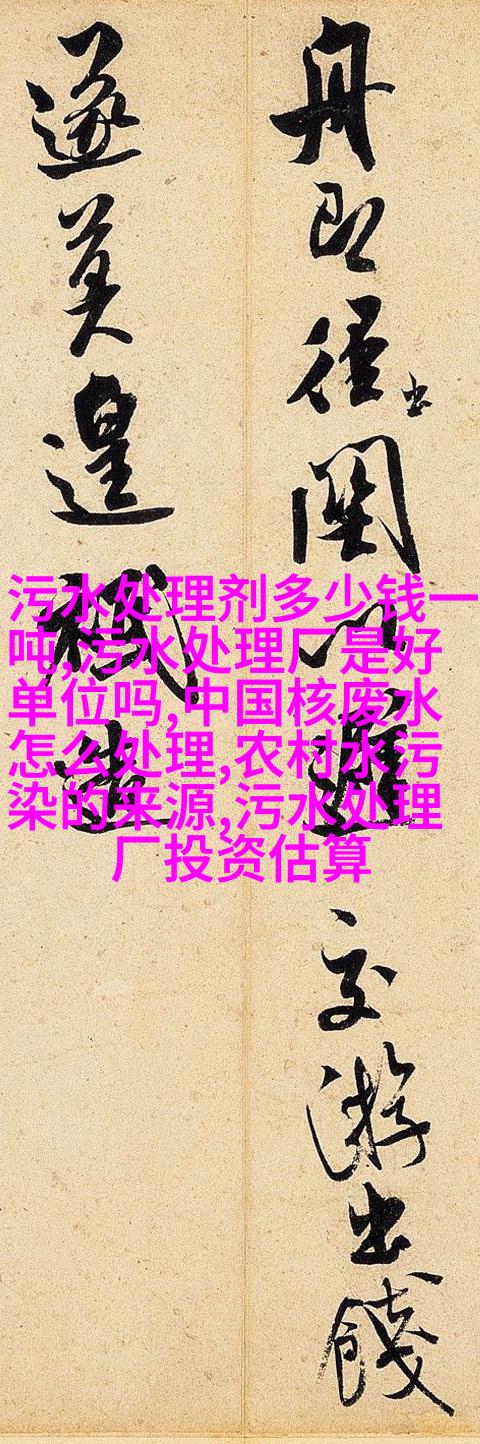 舟即徑出關 交游出餞
遂莫遑
污水处理剂多少钱一
吨,污水处理厂是好
单位吗,中国核废水
怎么处理,农村水污
染的来源,污水处理
厂投资估算